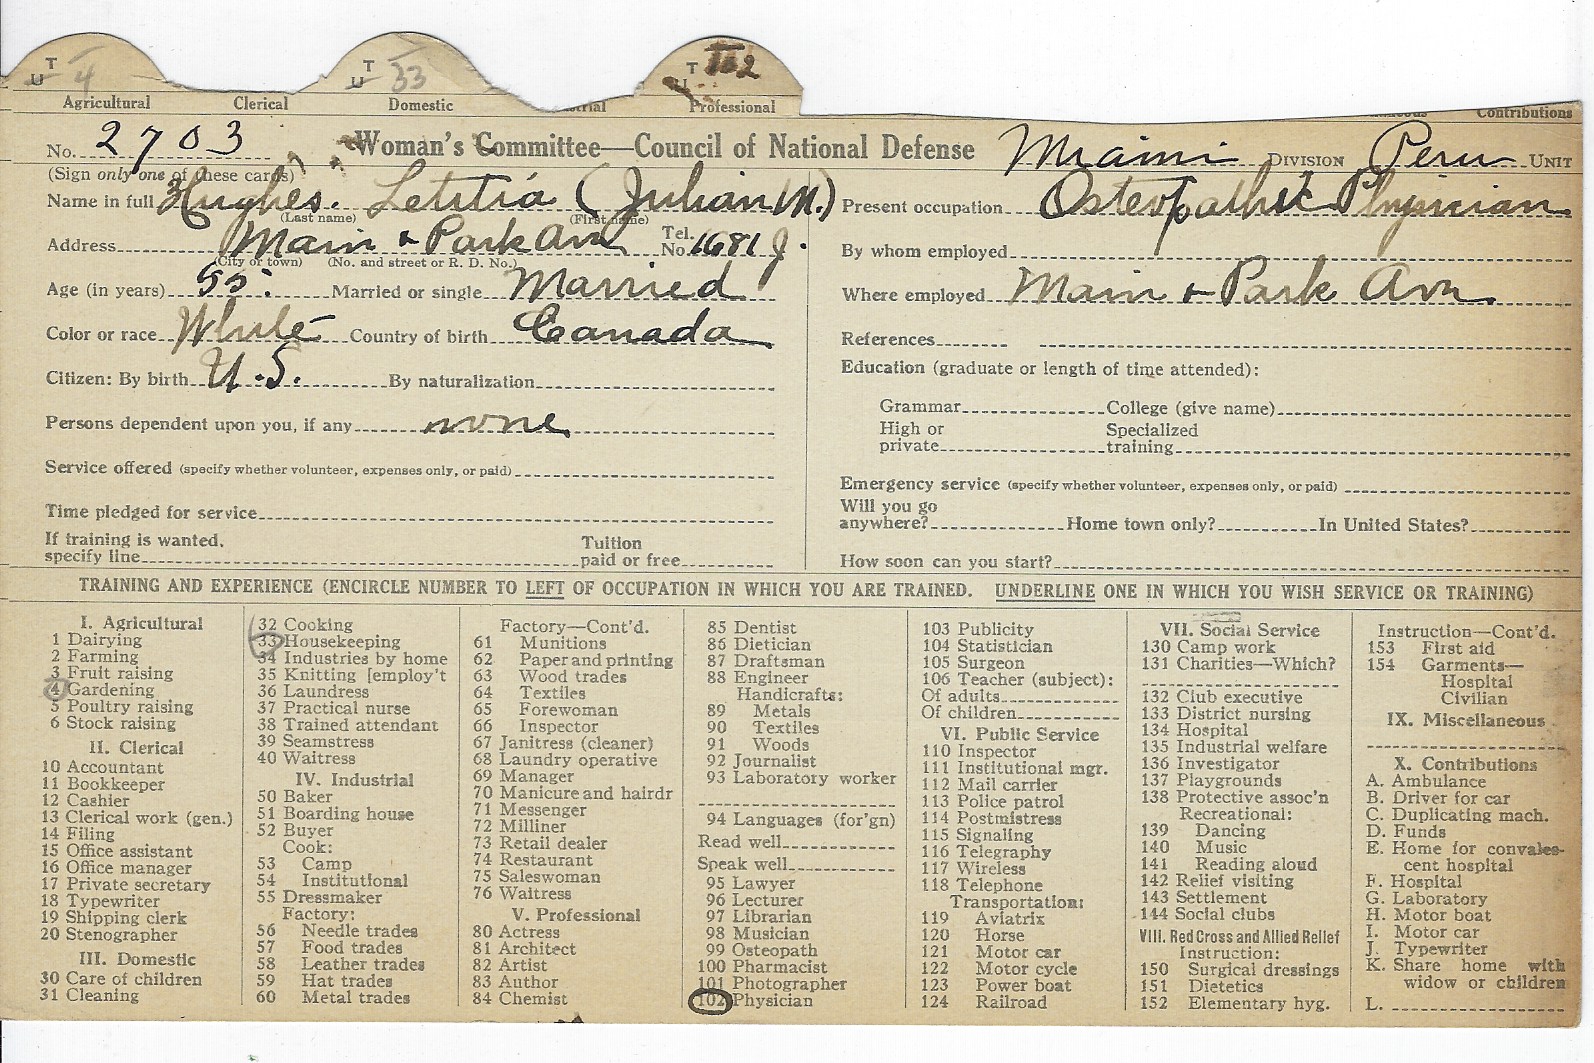 T T T
U 4 U 33 U 102
Agricultural Clerical Domestic Professional Contributions
No. 2703 Woman's Committee—Council of National Defense Miami DIVISION Peru UNIT
(Sign only one of these cards)
Name in full Hughes. Letitia (Julian M.)
(Last name) (First name)
Address Main & Park Ave Tel. No. 1681 J.
(City or town) (No. and street or R. D. No.)
Age (in years) 55. Married or single Married
Color or race White Country of birth Canada
Citizen: By birth U.S. By naturalization
Persons dependent upon you, if any none
Service offered (specify whether volunteer, expenses only, or paid)
Time pledged for service
If training is wanted, Tuition
specify line paid or free
Present occupation Osteopathic Physician
By whom employed
Where employed Main & Park Ave
References
Education (graduate or length of time attended):
Grammar College (give name)
High or Specialized
private training
Emergency service (specify whether volunteer, expenses only, or paid)
Will you go
anywhere? Home town only? In United States?
How soon can you start?
TRAINING AND EXPERIENCE (ENCIRCLE NUMBER TO LEFT OF OCCUPATION IN WHICH YOU ARE TRAINED. UNDERLINE ONE IN WHICH YOU WISH SERVICE OR TRAINING)
I. Agricultural
1 Dairying
2 Farming
3 Fruit raising
4 Gardening
5 Poultry raising
6 Stock raising
II. Clerical
10 Accountant
11 Bookkeeper
12 Cashier
13 Clerical work (gen.)
14 Filing
15 Office assistant
16 Office manager
17 Private secretary
18 Typewriter
19 Shipping clerk
20 Stenographer
III. Domestic
30 Care of children
31 Cleaning
32 Cooking
33 Housekeeping
34 Industries by home
35 Knitting [employ't
36 Laundress
37 Practical nurse
38 Trained attendant
39 Seamstress
40 Waitress
IV. Industrial
50 Baker
51 Boarding house
52 Buyer
Cook:
53 Camp
54 Institutional
55 Dressmaker
Factory:
56 Needle trades
57 Food trades
58 Leather trades
59 Hat trades
60 Metal trades
Factory—Cont'd.
61 Munitions
62 Paper and printing
63 Wood trades
64 Textiles
65 Forewoman
66 Inspector
67 Janitress (cleaner)
68 Laundry operative
69 Manager
70 Manicure and hairdr
71 Messenger
72 Milliner
73 Retail dealer
74 Restaurant
75 Saleswoman
76 Waitress
V. Professional
80 Actress
81 Architect
82 Artist
83 Author
84 Chemist
85 Dentist
86 Dietician
87 Draftsman
88 Engineer
Handicrafts:
89 Metals
90 Textiles
91 Woods
92 Journalist
93 Laboratory worker
94 Languages (for'gn)
Read well
Speak well
95 Lawyer
96 Lecturer
97 Librarian
98 Musician
99 Osteopath
100 Pharmacist
101 Photographer
102 Physician
103 Publicity
104 Statistician
105 Surgeon
106 Teacher (subject):
Of adults
Of children
VI. Public Service
110 Inspector
111 Institutional mgr.
112 Mail carrier
113 Police patrol
114 Postmistress
115 Signaling
116 Telegraphy
117 Wireless
118 Telephone
Transportation:
119 Aviatrix
120 Horse
121 Motor car
122 Motor cycle
123 Power boat
124 Railroad
VII. Social Service
130 Camp work
131 Charities—Which?
132 Club executive
133 District nursing
134 Hospital
135 Industrial welfare
136 Investigator
137 Playgrounds
138 Protective assoc'n
Recreational:
139 Dancing
140 Music
141 Reading aloud
142 Relief visiting
143 Settlement
144 Social clubs
VIII. Red Cross and Allied Relief
Instruction:
150 Surgical dressings
151 Dietetics
152 Elementary hyg.
Instruction—Cont'd.
153 First aid
154 Garments—
Hospital
Civilian
IX. Miscellaneous
X. Contributions
A. Ambulance
B. Driver for car
C. Duplicating mach.
D. Funds
E. Home for convales-
cent hospital
F. Hospital
G. Laboratory
H. Motor boat
I. Motor car
J. Typewriter
K. Share home with
widow or children
L.